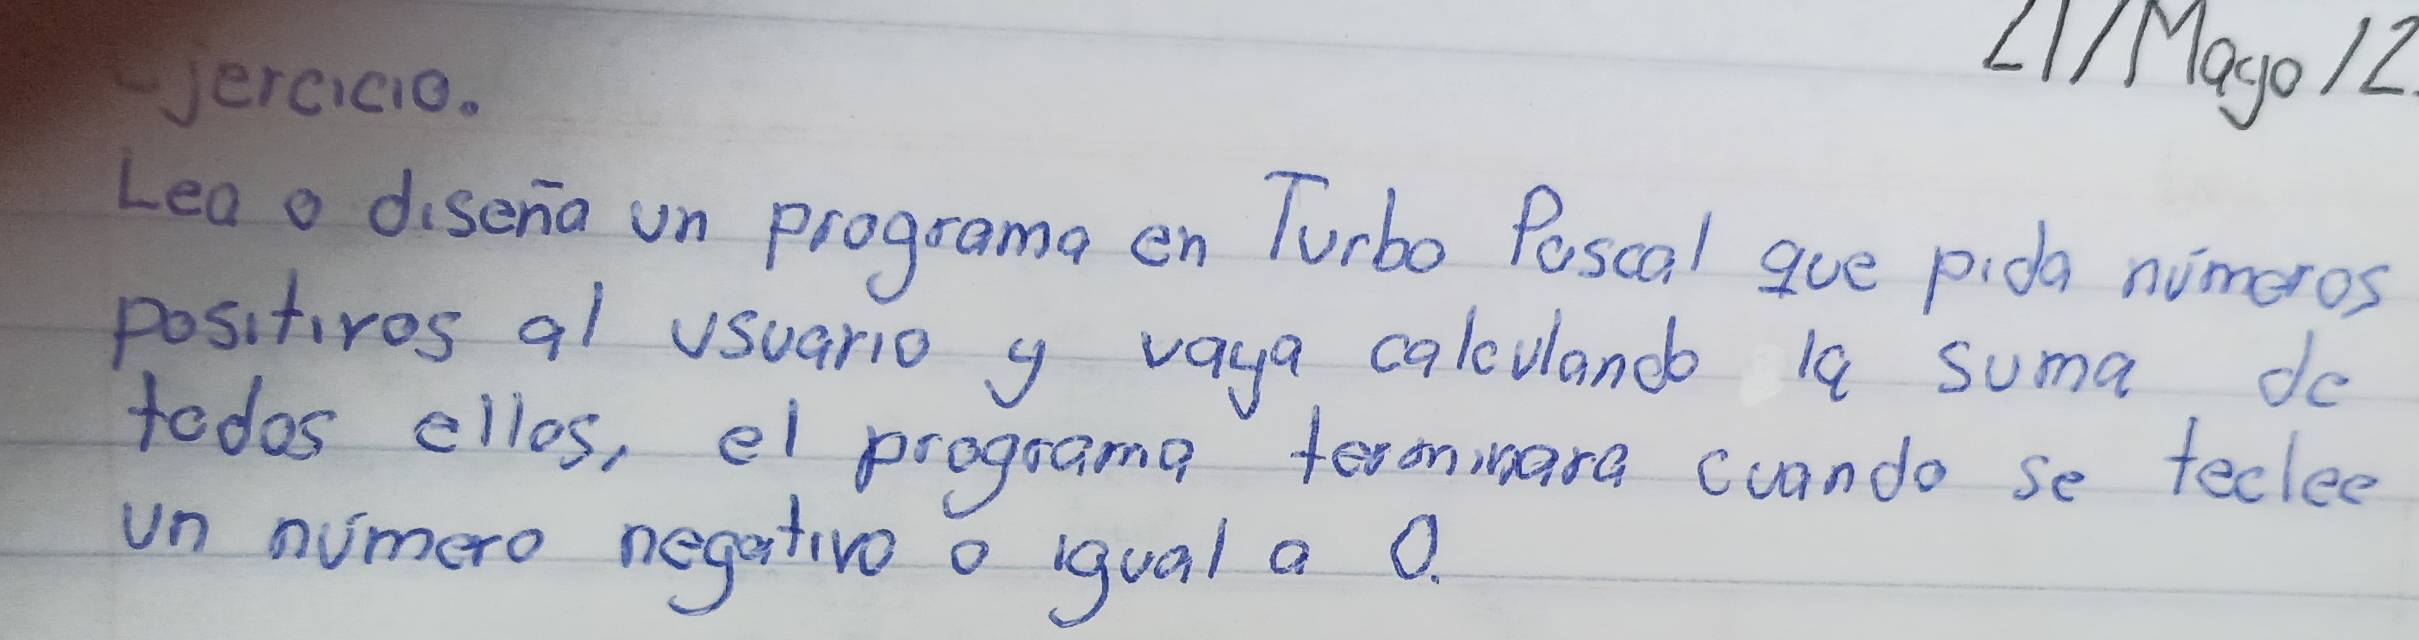 21/Mayo/12.
Ejercicio.
Lea o diseña un programa en Turbo Pascal que pida números
positivos al usuario y vaya calculando la suma de
todos ellos, el programa terminara cuando se teclee
un número negativo o igual a 0.